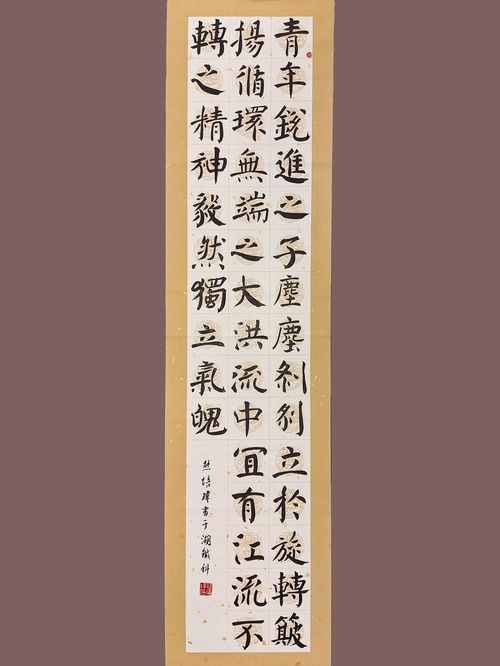 青年銳進之子塵塵刹刹立於旋轉簸
揚循環無端之大洪流中宜有江流不
轉之精神毅然獨立氣魄
培瑋書于湖科